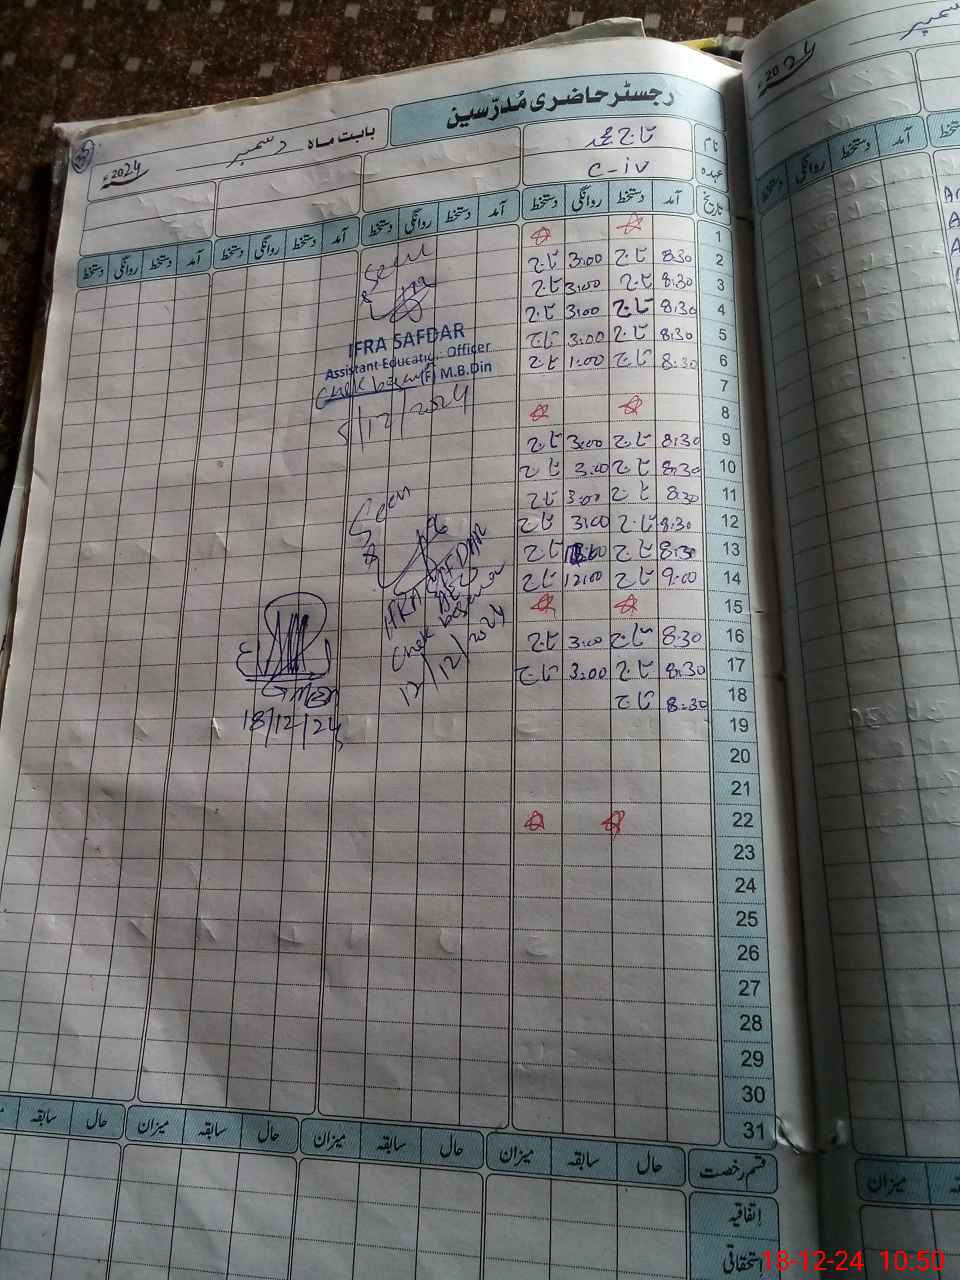 رجسٹر حاضری مُدرّسین
بابت ماہ دسمبر 2024ء
35
نام تاج محمد
عہدہ C-iv
تاریخ آمد دستخط روانگی دستخط آمد دستخط روانگی دستخط آمد دستخط روانگی دستخط
1
2 8:30 تاج 3:00 تاج
3 8:30 تاج 3:00 تاج
4 8:30 تاج 3:00 تاج
5 8:30 تاج 3:00 تاج
6 8:30 تاج 1:00 تاج
7
8
9 8:30 تاج 3:00 تاج
10 8:30 تاج 3:00 تاج
11 8:30 تاج 3:00 تاج
12 8:30 تاج 3:00 تاج
13 8:30 تاج تاج
14 9:00 تاج 12:00 تاج
15
16 8:30 تاج 3:00 تاج
17 8:30 تاج 3:00 تاج
18 8:30 تاج
19
20
21
22
23
24
25
26
27
28
29
30
31
Seen
IFRA SAFDAR
Assistant Education Officer
(F) M.B.Din
5/12/2024
Seen
IFRA SAFDAR
AEO
12/12/2024
18/12/24
قسم رخصت حال سابقہ میزان حال سابقہ میزان حال سابقہ میزان
اِتفاقیہ
استحقاقی
2024
دسمبر
آمد دستخط روانگی دستخط
میزان
18-12-24 10:50